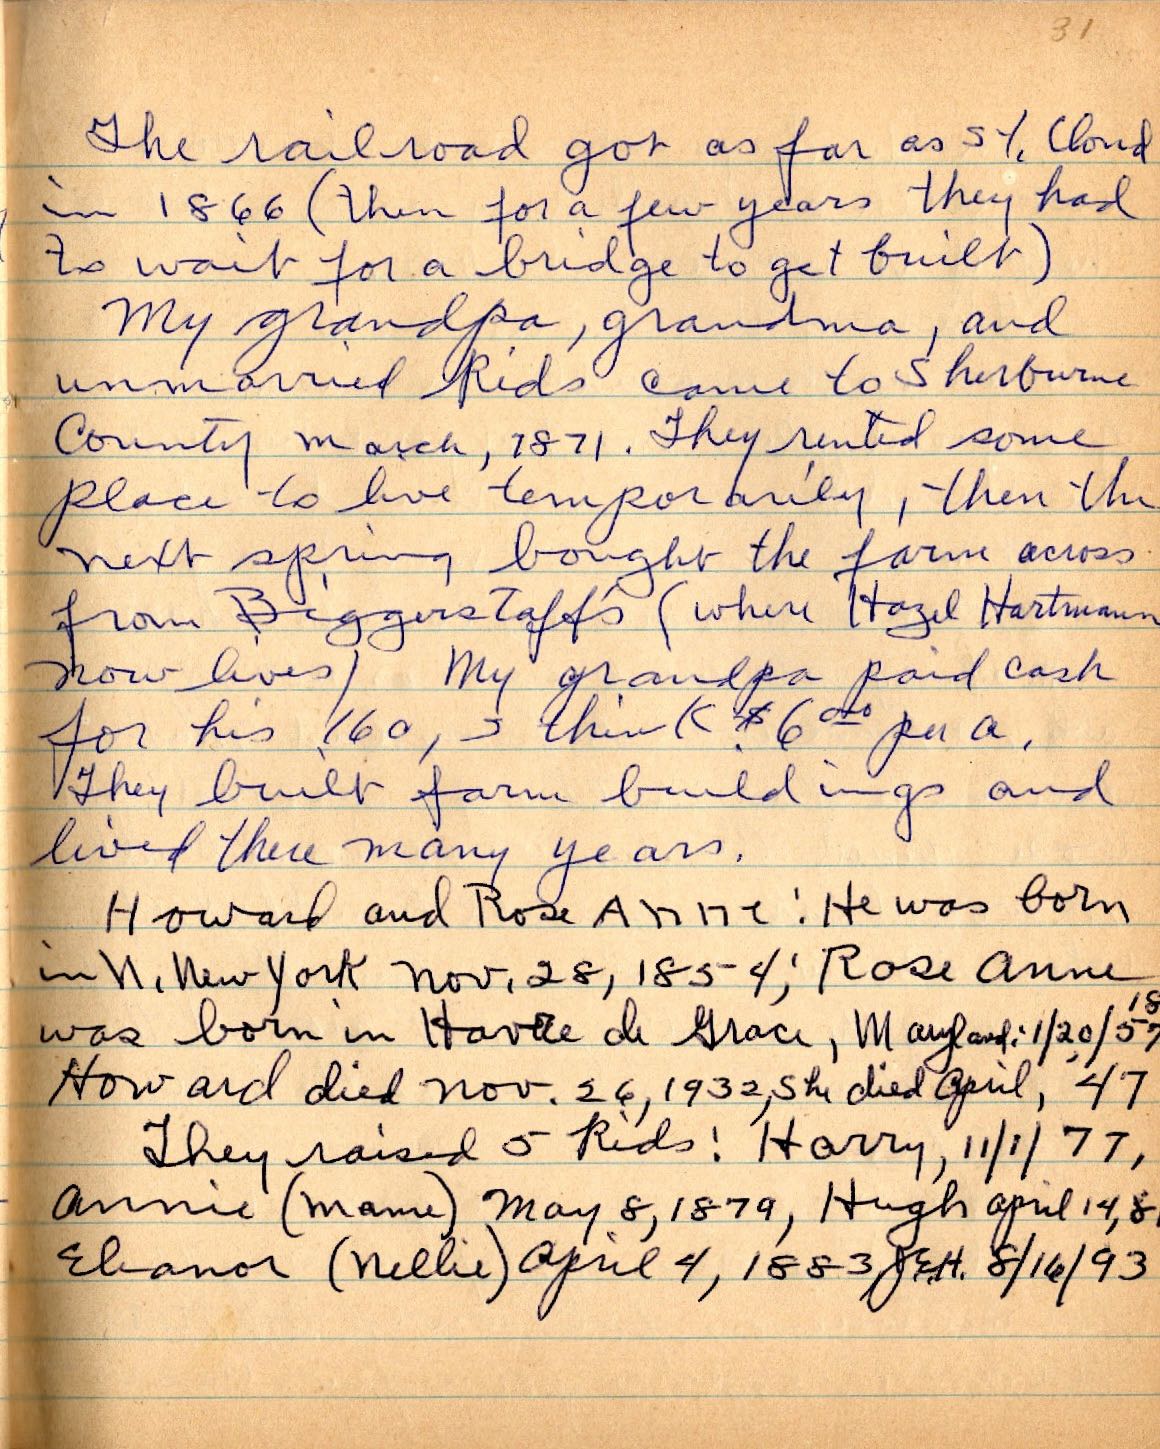 31
The railroad got as far as St. Cloud
in 1866 (then for a few years they had
to wait for a bridge to get built)
My grandpa, grandma, and
unmarried kids came to Sherburne
County March, 1871. They rented some
place to live temporarily, then the
next spring bought the farm across
from Biggerstaffs (where Hazel Hartmann
now lives) My grandpa paid cash
for his 160, I think $6 00 per a.
They built farm buildings and
lived there many years.
Howard and Rose Anne: He was born
in N. New York Nov. 28, 1854; Rose Anne
was born in Havre de Grace, Maryland: 1/20/1857
Howard died Nov. 26, 1932, She died April, 47
They raised 5 kids: Harry, 11/1/77,
Annie (Mame) May 8, 1879, Hugh April 14, 81
Eleanor (Nellie) April 4, 1883 J.E.H. 8/16/93